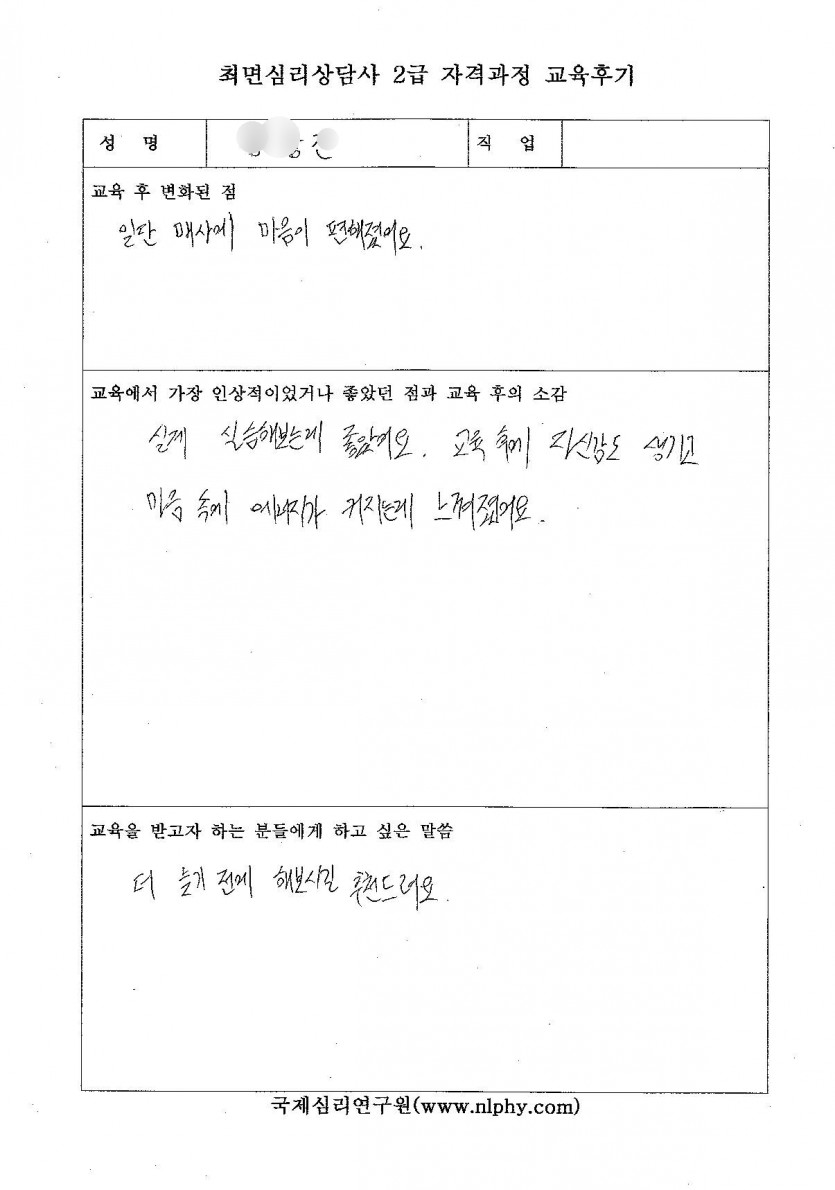 최면심리상담사 2급 자격과정 교육후기
성 명
직 업
교육 후 변화된 점
일단 매사에 마음이 편해졌어요.
교육에서 가장 인상적이었거나 좋았던 점과 교육 후의 소감
실제 실습해보는게 좋았어요. 교육 후에 자신감도 생기고
마음 속에 에너지가 커지는게 느껴졌어요.
교육을 받고자 하는 분들에게 하고 싶은 말씀
더 늦기 전에 해보시길 추천드려요.
국제심리연구원(www.nlphy.com)